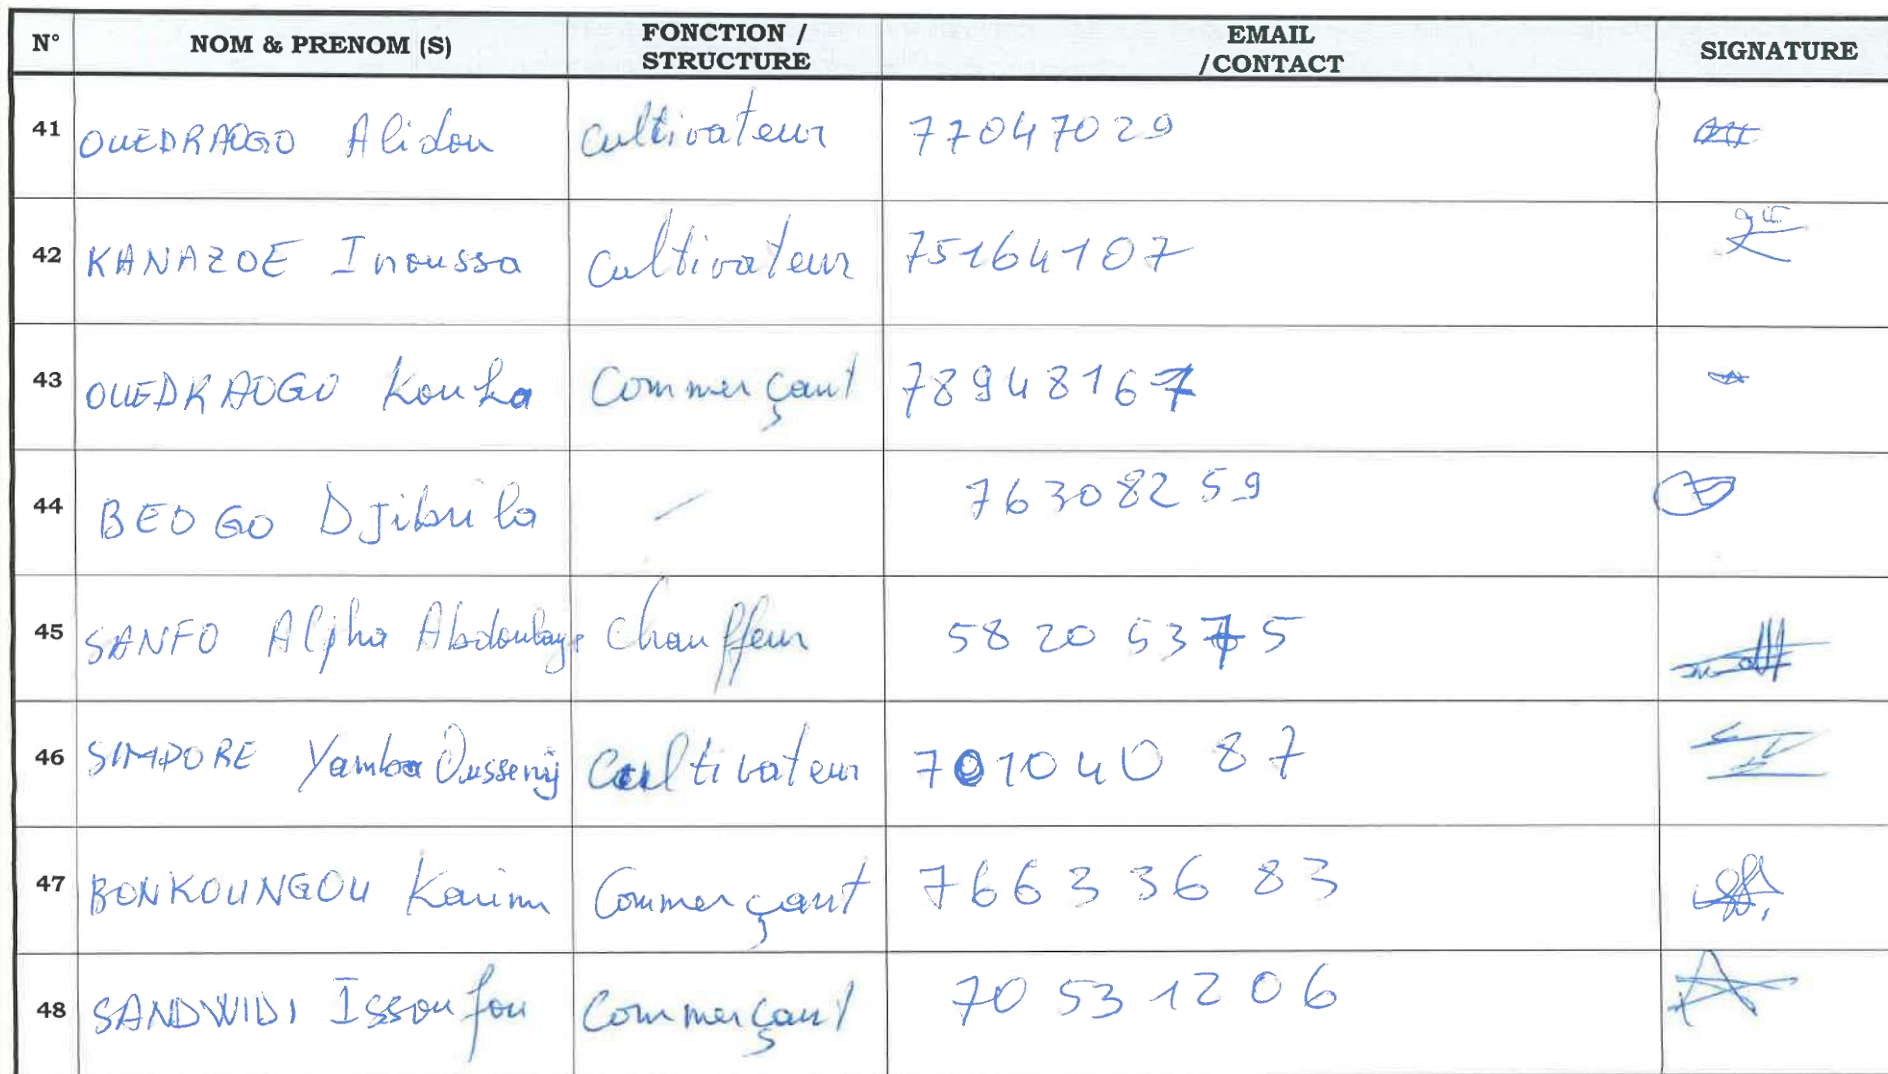 N° NOM & PRENOM (S) FONCTION / STRUCTURE EMAIL /CONTACT SIGNATURE
41 OUEDRAOGO Alidou cultivateur 77047029
42 KANAZOE Inoussa cultivateur 75164107
43 OUEDRAOGO Kouka Commerçant 78948167
44 BEOGO Djibrila / 76308259
45 SANFO Alpha Abdoulaye Chauffeur 58 20 53 75
46 SIMPORE Yamba Ousseny cultivateur 701040 87
47 BONKOUNGOU Karim Commerçant 7663 36 83
48 SANDWIDI Issoufou Commerçant 70 53 12 06